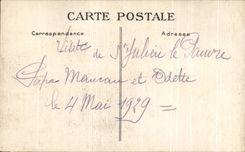 CARTE POSTALE
Correspondance Adresse
Visite de St Julien le Pauvre
Papa Maman et Odette
le 4 Mai 1929